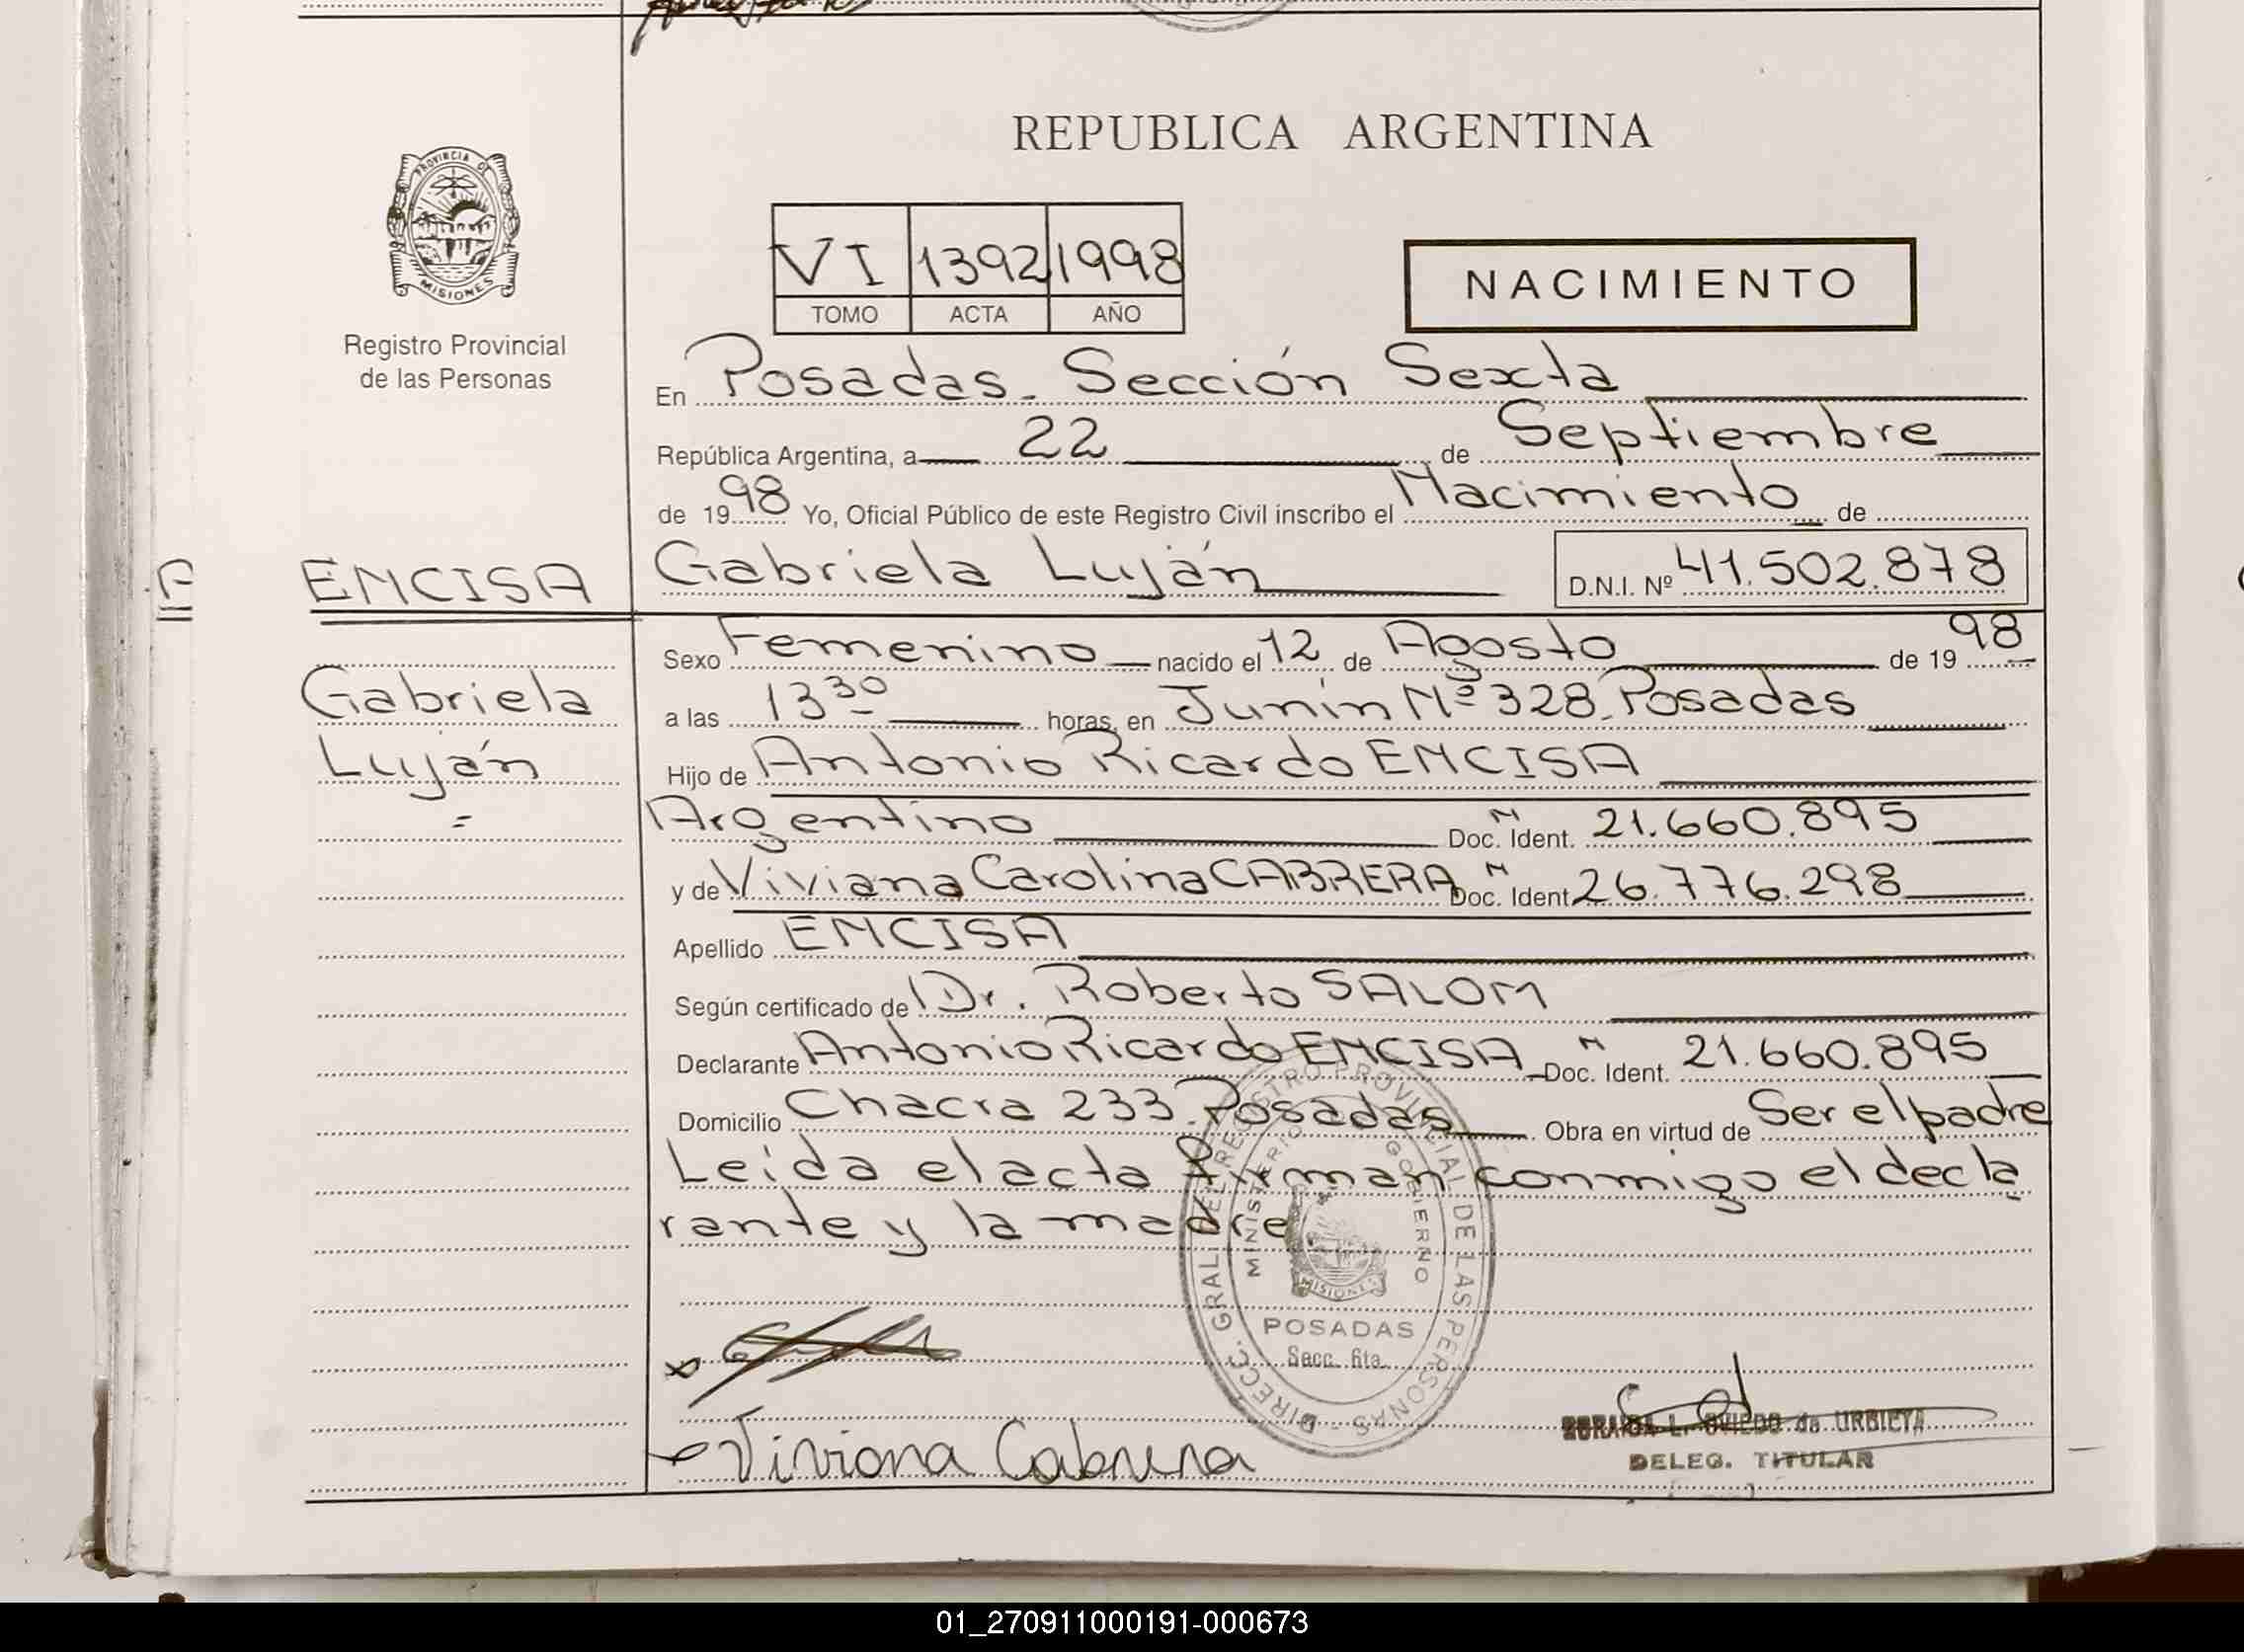 REPUBLICA ARGENTINA
PROVINCIA DE
MISIONES
Registro Provincial
de las Personas
VI 1392 1998
TOMO ACTA AÑO
NACIMIENTO
En Posadas. Sección Sexta
República Argentina, a 22 de Septiembre
de 1998 Yo, Oficial Público de este Registro Civil inscribo el Nacimiento de
ENCISA Gabriela Luján D.N.I. Nº 41.502.878
Sexo Femenino nacido el 12 de Agosto de 1998
Gabriela a las 13 30 horas, en Junín Nº 328. Posadas
Luján Hijo de Antonio Ricardo ENCISA
Argentino Doc. Ident. N 21.660.895
y de Viviana Carolina CABRERA Doc. Ident N 26.776.298
Apellido ENCISA
Según certificado de Dr. Roberto SALOM
Declarante Antonio Ricardo ENCISA Doc. Ident. N 21.660.895
Domicilio Chacra 233. Posadas Obra en virtud de Ser el padre
Leída el acta firman conmigo el decla
rante y la madre
DIRECC. GRAL. DEL REGISTRO PROVINCIAL DE LAS PERSONAS
MINISTERIO GOBIERNO
MISIONES
POSADAS
Secc. 6ta.
L. OVIEDO de URBIETA
DELEG. TITULAR
Viviana Cabrera
01_270911000191-000673